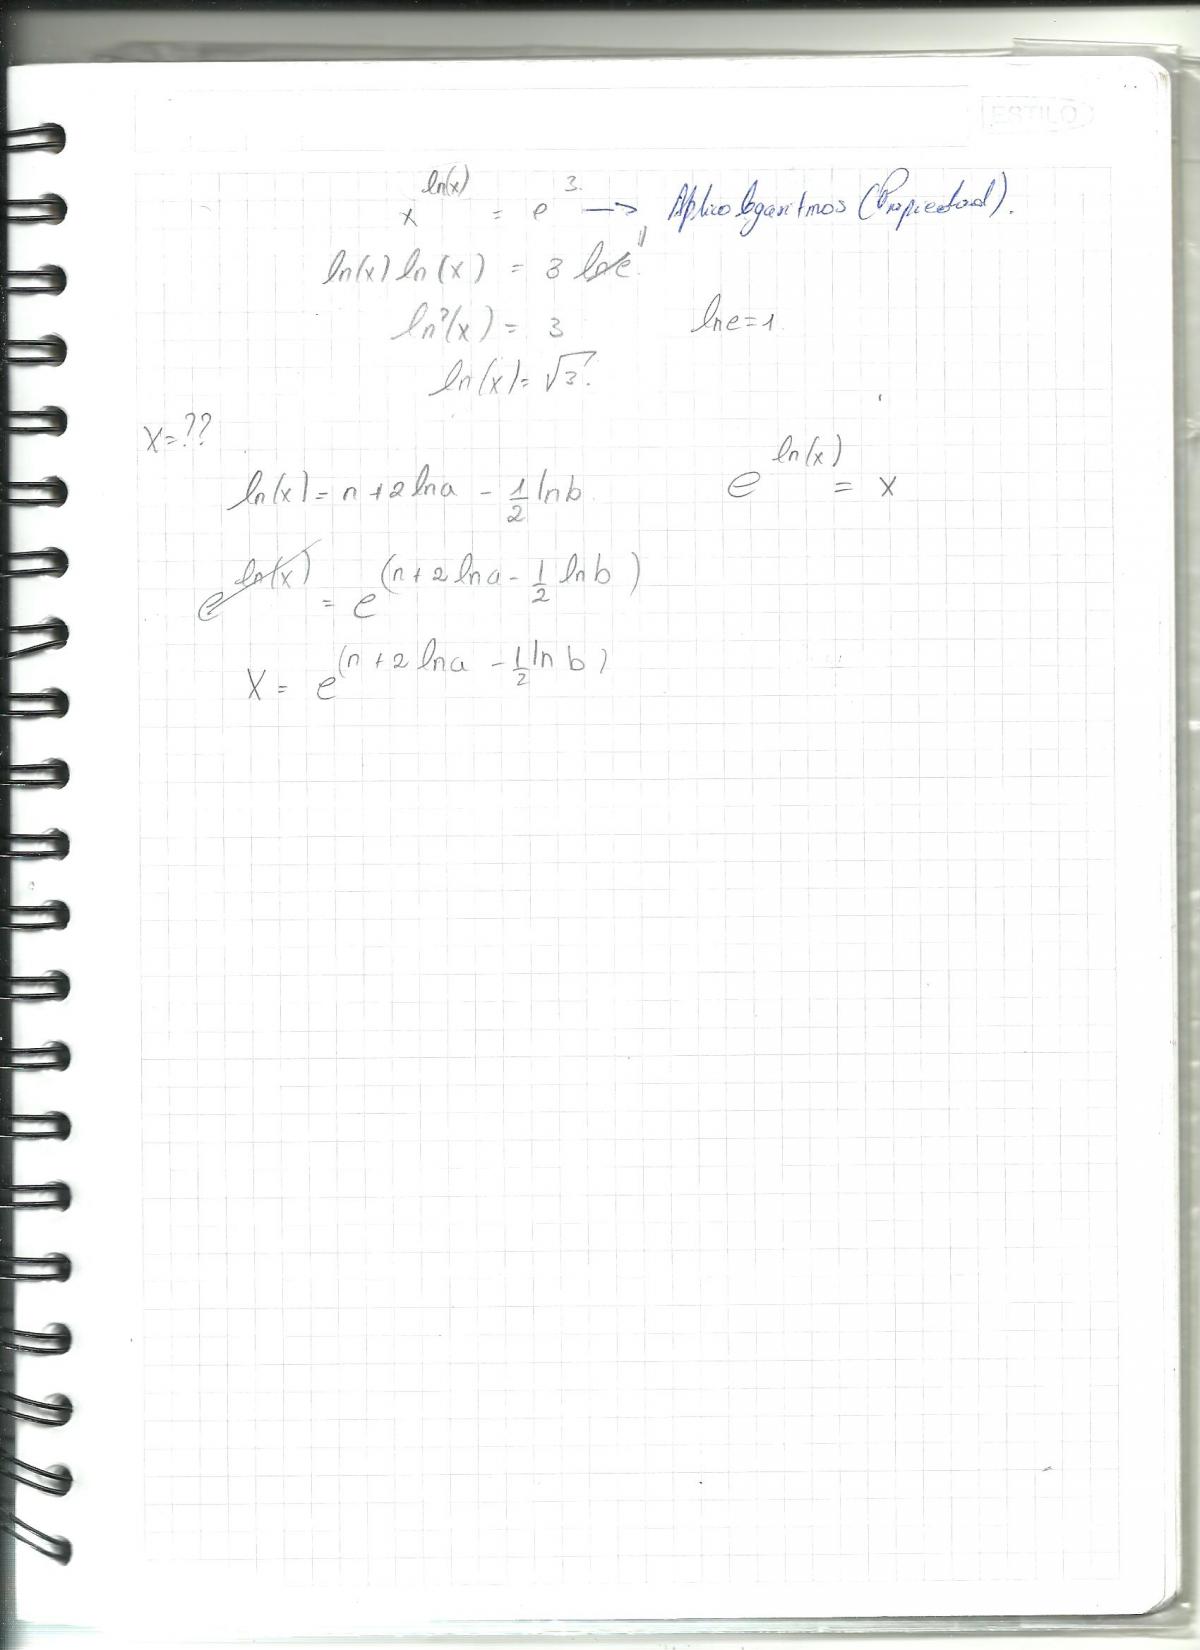 ESTILO
x^ln(x) = e^3. → Aplico logaritmos (Propiedad).
ln(x) ln(x) = 3 ln e^1
ln²(x) = 3 ln e = 1.
ln(x) = √3.
X = ??
ln(x) = n + 2 ln a - 1/2 ln b. e^ln(x) = x
e^ln(x) = e^(n + 2 ln a - 1/2 ln b)
X = e^(n + 2 ln a - 1/2 ln b)